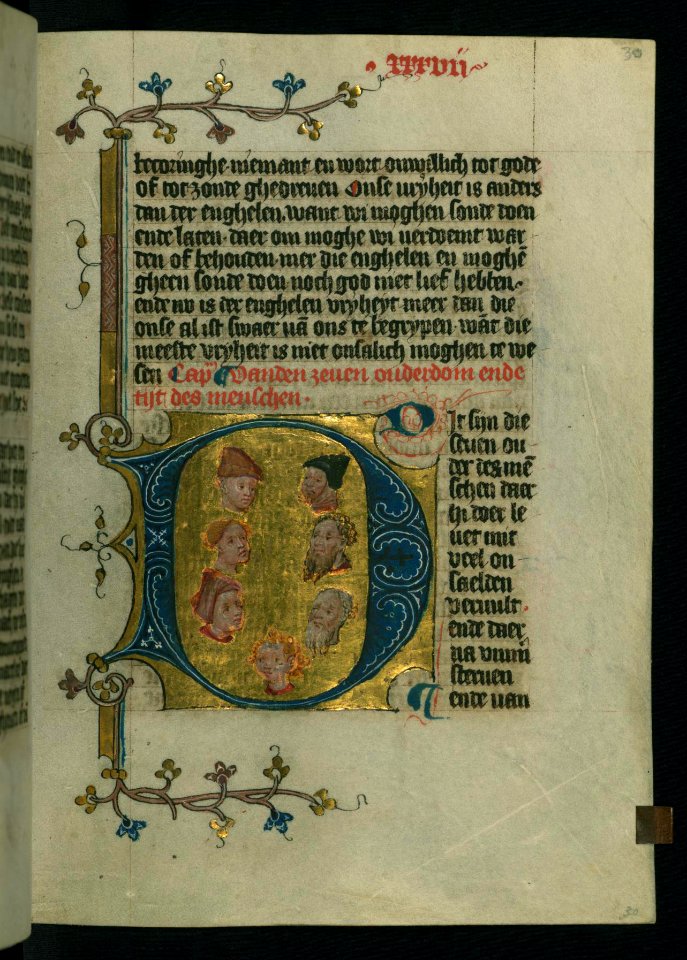 xxxvii
30
becoringhe · niemant en wort onwillich tot gode
of tot zonde ghedreven Onse vryheit is anders
dan der enghelen. want wi moghen sonde doen
ende laten · daer om moghe wi verdoemt wer
den of behouden · mer die enghelen en moghē
gheen sonde doen noch god niet lief hebben ·
ende no is der enghelen vryheyt meer dan die
onse al ist swaer vā ons te begrypen · wāt die
meeste vryheit is niet onsalich moghen te we
sen Cap Vanden zeven ouderdom ende
tijt des menschen ·
Dit sijn die
seven ou
der des mē
schen daer
hi doer le
vet mit
veel on
saelden
vervult ·
ende daer
na
sterven
ende van
30